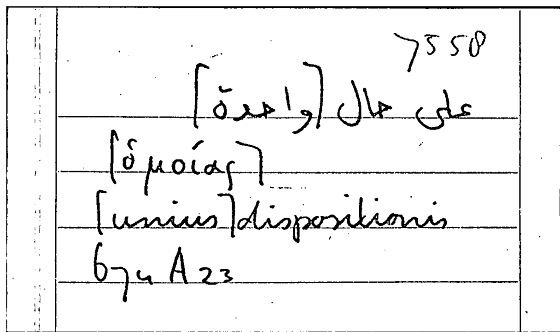 7558
على حال [واحدة]
[ὁμοίας]
[unius] dispositionis
A 23